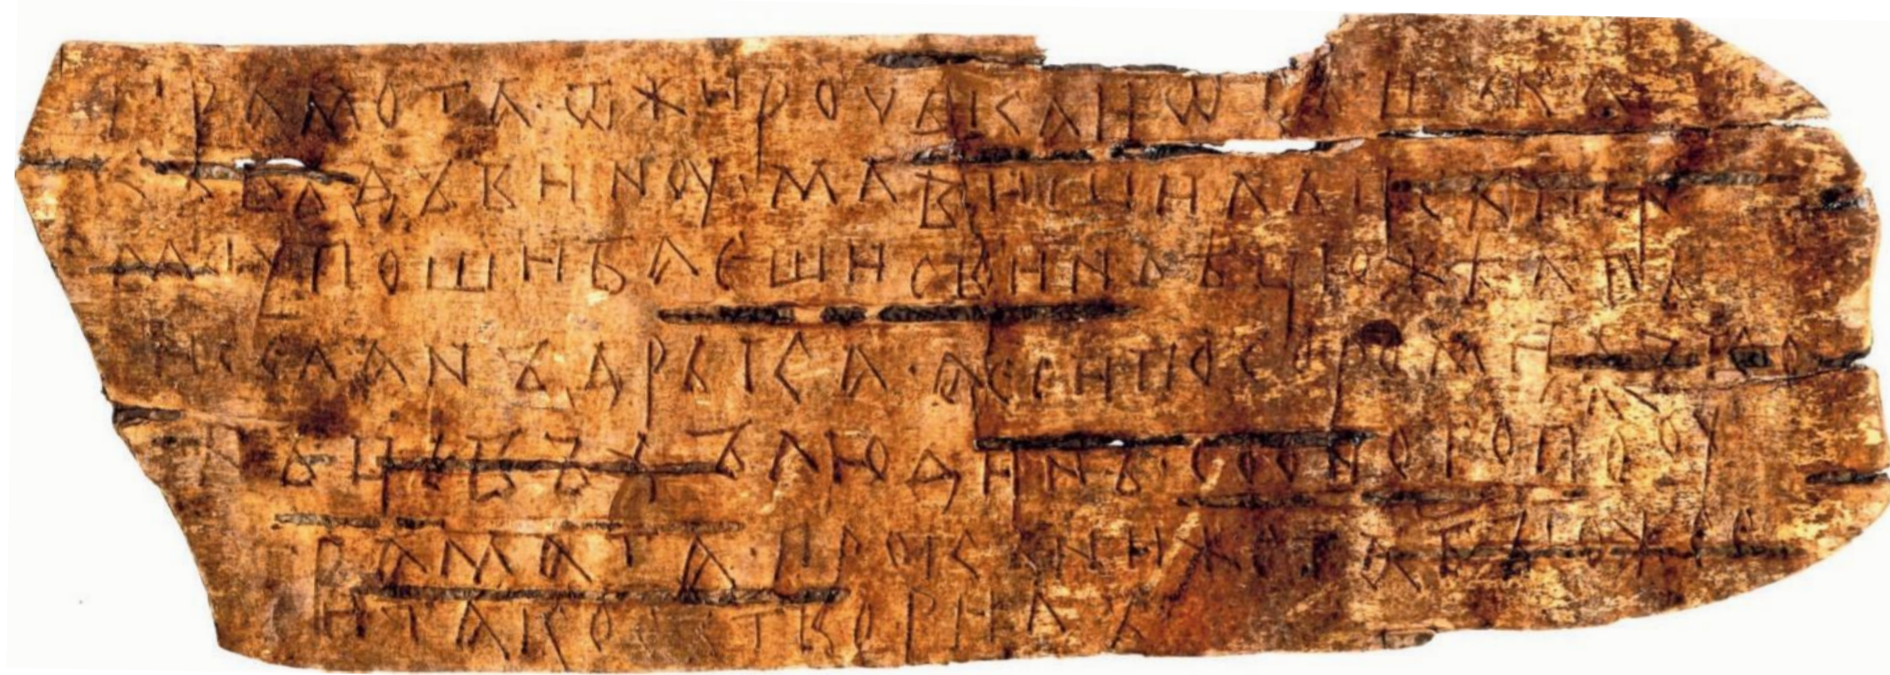 грамота·ѿжироцькаиѿтьшька
къвъдъвиноу·млвишильцеви
цемоупошибаешисвиньѣцюжѣапъ
несланъдрькa·аесипосоромил
коньцьвъхълюдинъ·сооногополоу
грамата·прокъниже та бъ оже е
си такосътворилъ